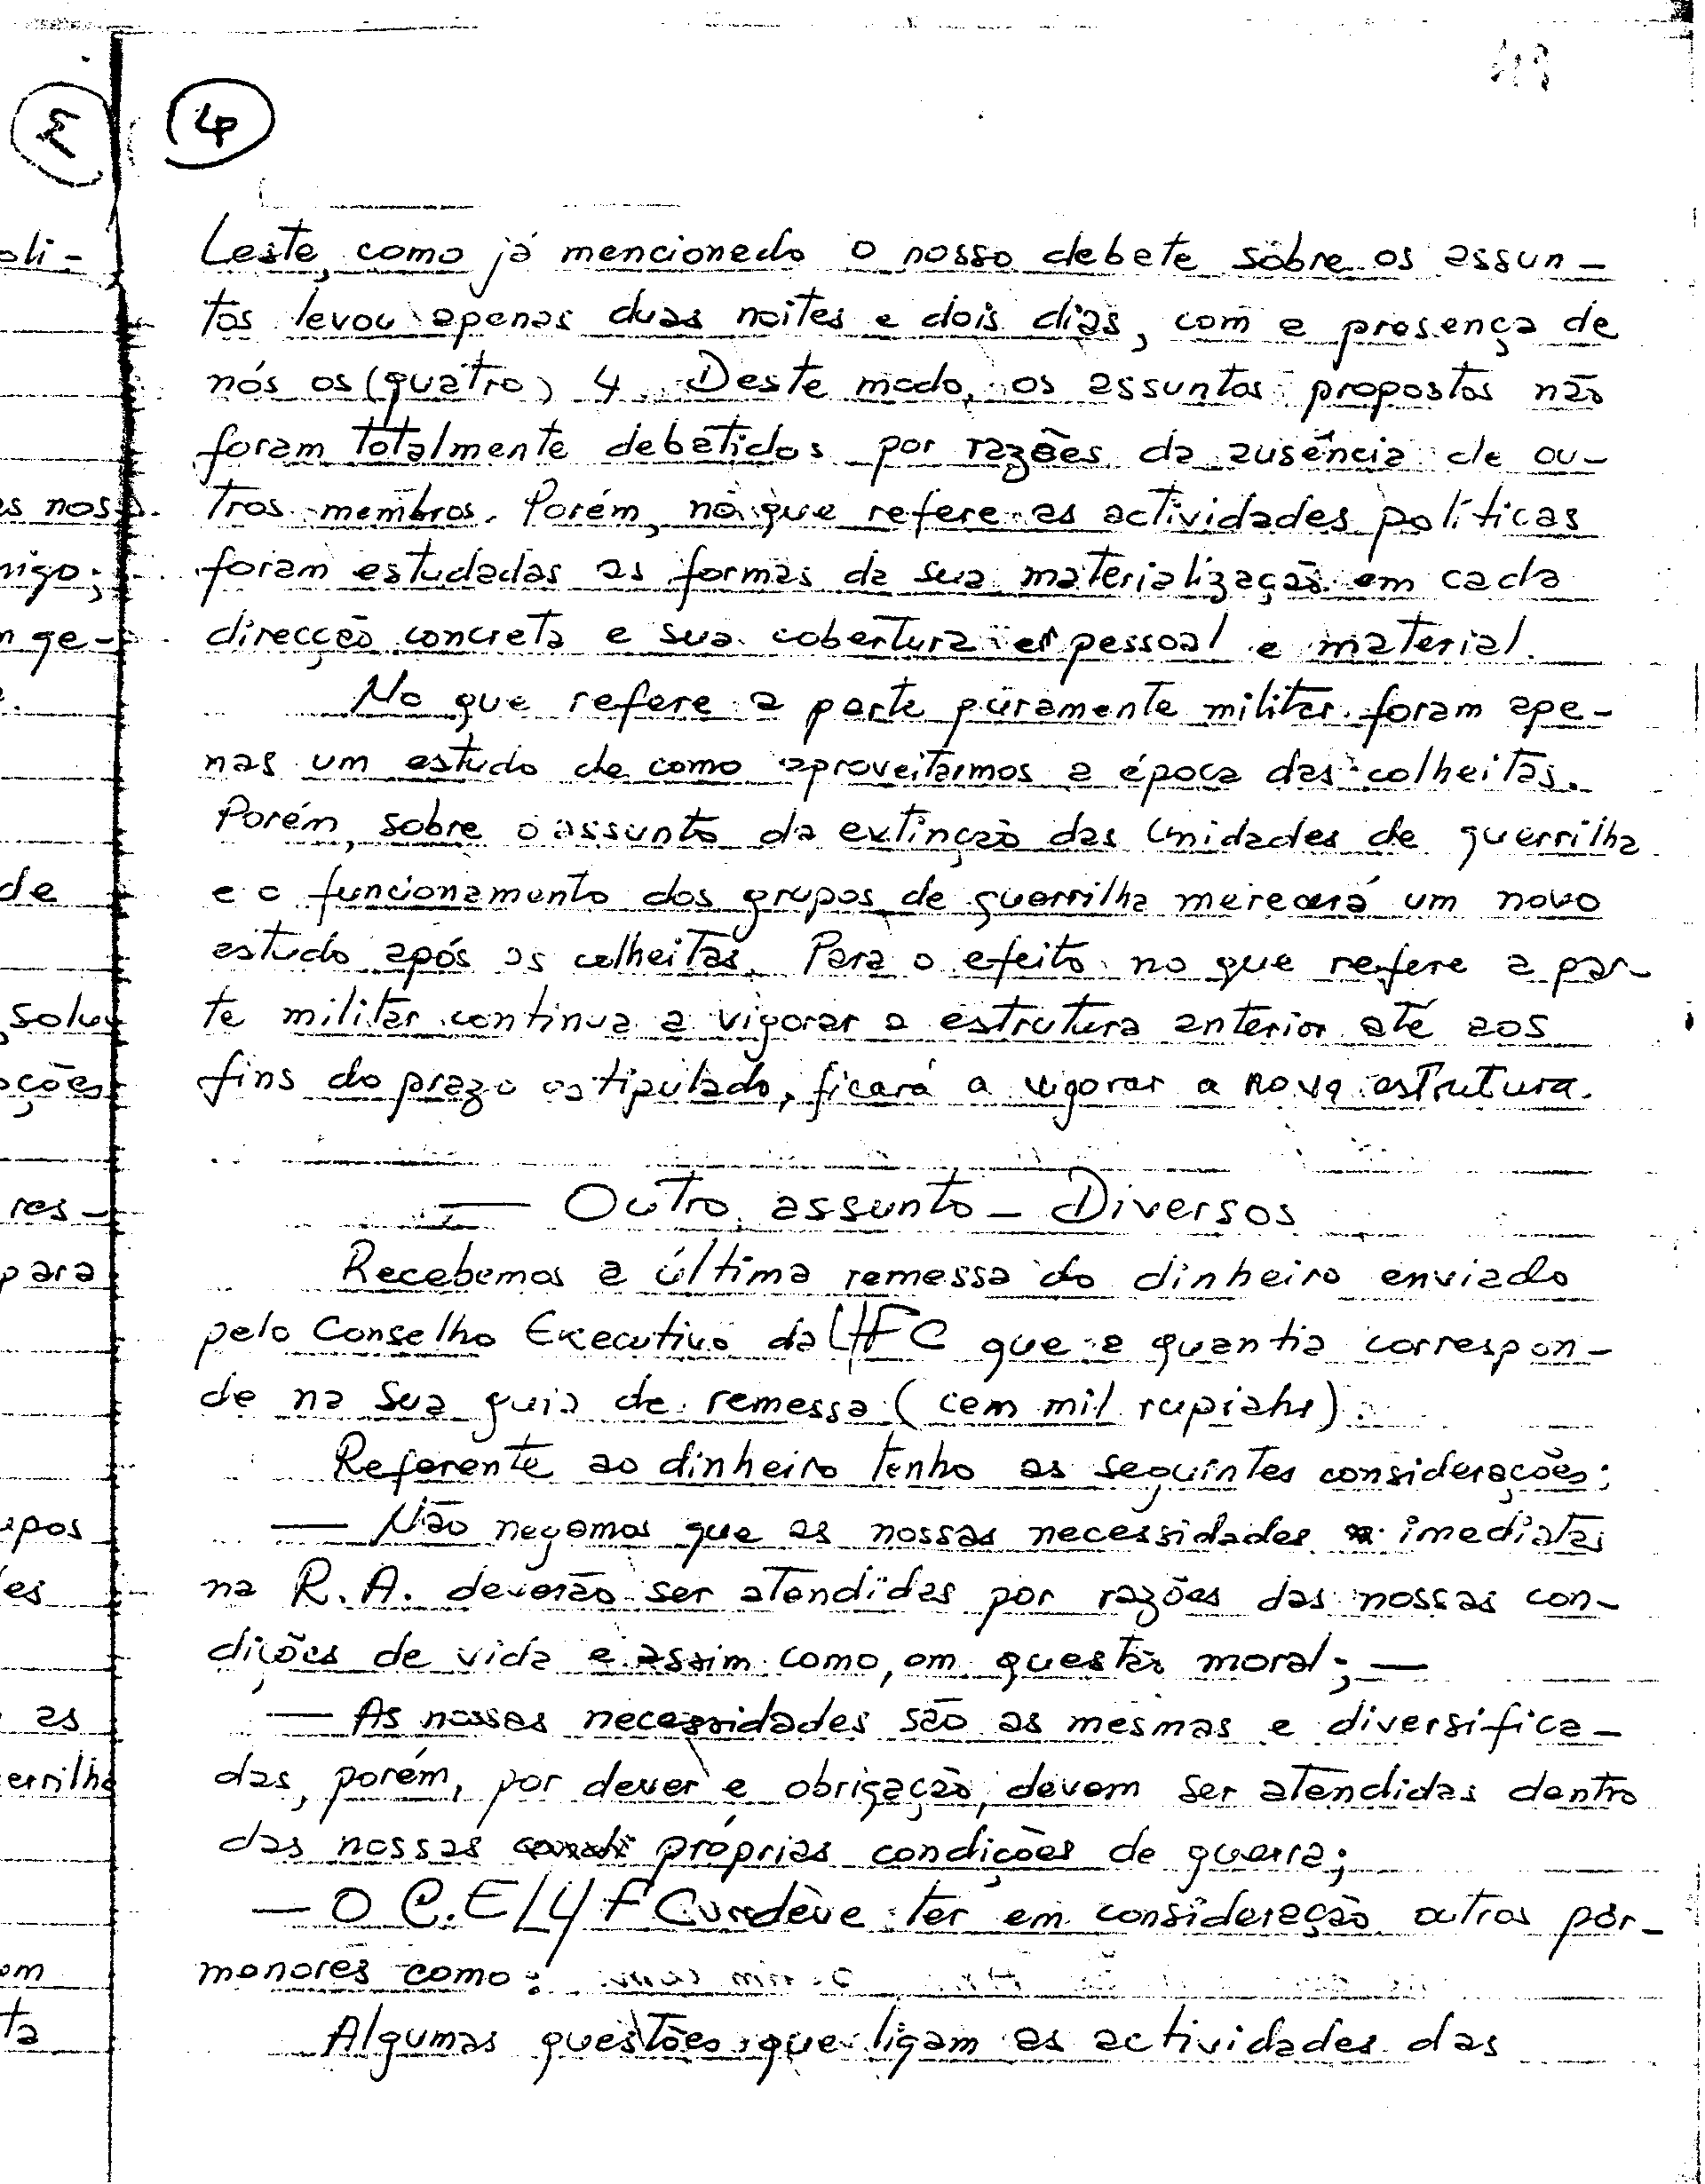 4
Leste, como já mencionado o nosso debate sôbre os assun-
tos levou apenas duas noites e dois dias, com a presença de
nós os (quatro) 4. Deste modo, os assuntos propostos não
foram totalmente debatidos por razões da ausência de ou-
tros membros. Porém, no que refere as actividades políticas
foram estudadas as formas da sua materialização em cada
direcção concreta e sua cobertura em pessoal e material.
No que refere a parte puramente militar foram ape-
nas um estudo de como aproveitarmos a época das colheitas.
Porém, sobre o assunto da extinção das Unidades de guerrilha
e o funcionamento dos grupos de guerrilha merecerá um novo
estudo após as colheitas. Para o efeito no que refere a par-
te militar continua a vigorar a estrutura anterior até aos
fins do prazo estipulado, ficará a vigorar a nova estrutura.
— Outro assunto — Diversos
Recebemos a última remessa do dinheiro enviado
pelo Conselho Executivo da que a quantia correspon-
de na sua guia de remessa (cem mil rupiahs).
Referente ao dinheiro tenho as seguintes considerações:
— Não negamos que as nossas necessidades imediatas
na R.A. deverão ser atendidas por razões das nossas con-
dições de vida e assim como, em questão moral; —
— As nossas necessidades são as mesmas e diversifica-
das, porém, por dever e obrigação, devem ser atendidas dentro
das nossas próprias condições de guerra;
— O C.E/ deve ter em consideração outros pór-
menores como:
Algumas questões que ligam as actividades das
oli-
as nos
migo;
ge-
de
ções
res-
para
as